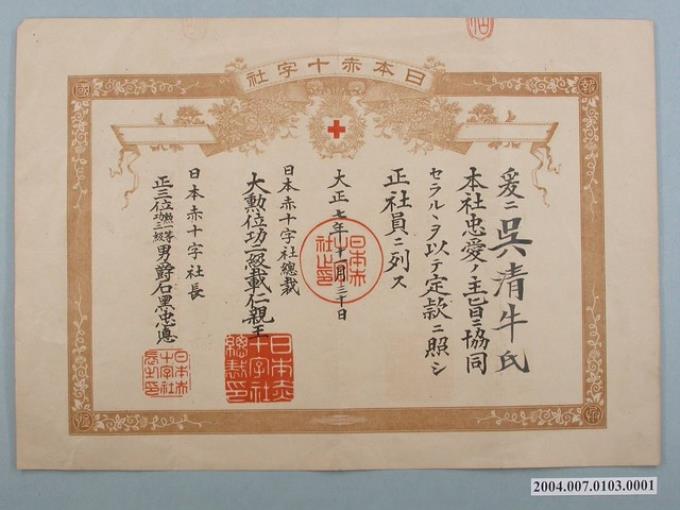 日本赤十字社
報
國
爰ニ呉清牛氏
本社忠愛ノ主旨ニ協同
セラルヽヲ以テ定款ニ照シ
正社員ニ列ス
大正七年十一月三十日
日本赤十字社總裁
大勲位功二級載仁親王
日本赤十字社長
正三位勲一等功三級男爵石黒忠悳
日本赤十字社之印
日本赤十字社總裁印
日本赤十字社長之印
2004.007.0103.0001